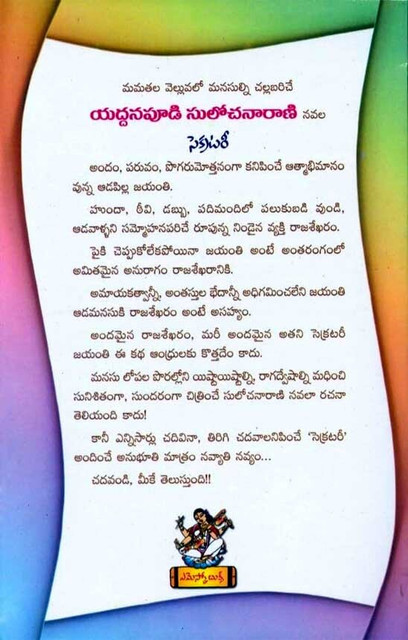 మమతల వెల్లువలో మనసుల్ని చల్లబరిచే
యద్దనపూడి సులోచనారాణి నవల
సెక్రటరీ
అందం, పరువం, పొగరుమోత్తనంగా కనిపించే ఆత్మాభిమానం
వున్న ఆడపిల్ల జయంతి.
హుందా, ఠీవి, డబ్బు, పదిమందిలో పలుకుబడి వుండి,
ఆడవాళ్ళని సమ్మోహనపరిచే రూపున్న నిండైన వ్యక్తి రాజశేఖరం.
పైకి చెప్పుకోలేకపోయినా జయంతి అంటే అంతరంగంలో
అమితమైన అనురాగం రాజశేఖరానికి.
అమాయకత్వాన్నీ, అంతస్తుల భేదాన్నీ అధిగమించలేని జయంతి
ఆడమనసుకి రాజశేఖరం అంటే అసహ్యం.
అందమైన రాజశేఖరం, మరీ అందమైన అతని సెక్రటరీ
జయంతి ఈ కథ ఆంధ్రులకు కొత్తదేం కాదు.
మనసు లోపల పొరల్లోని యిష్టాయిష్టాల్ని, రాగద్వేషాల్ని మధించి
సునిశితంగా, సుందరంగా చిత్రించే సులోచనారాణి నవలా రచనా
తెలియంది కాదు!
కానీ ఎన్నిసార్లు చదివినా, తిరిగి చదవాలనిపించే 'సెక్రటరీ'
అందించే అనుభూతి మాత్రం నవ్యాతి నవ్యం...
చదవండి, మీకే తెలుస్తుంది!!
ఎమెస్కో బుక్స్